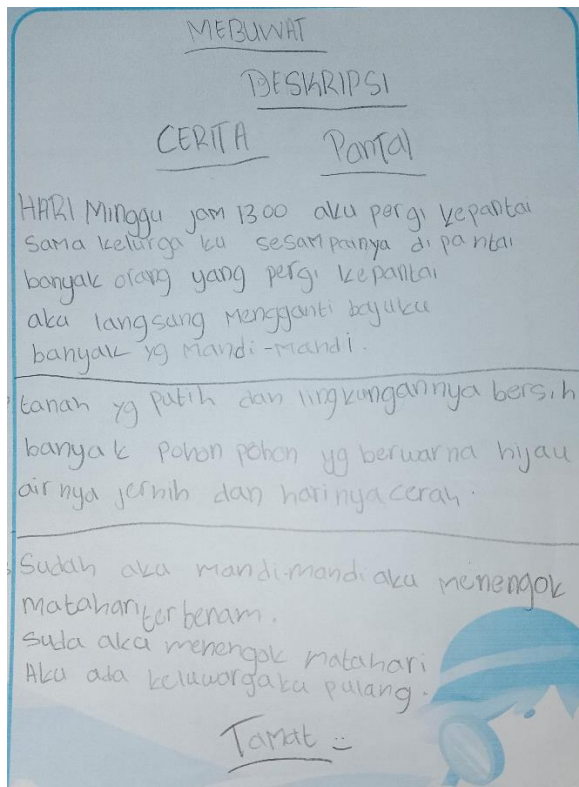 MEBUWAT
DESKRIPSI
CERITA Pantai
HARI Minggu jam 1300 aku pergi kepantai
sama kelurga ku sesampainya di pantai
banyak orang yang pergi kepantai
aku langsung Mengganti bajuku
banyak yg Mandi-Mandi.
tanah yg putih dan lingkungannya bersih
banyak pohon pohon yg berwarna hijau
airnya jernih dan harinya cerah.
Sudah aku mandi-mandi aku menengok
matahariterbenam.
suda aku menengok matahari
Aku ada keluwargaku pulang.
Tamat :)